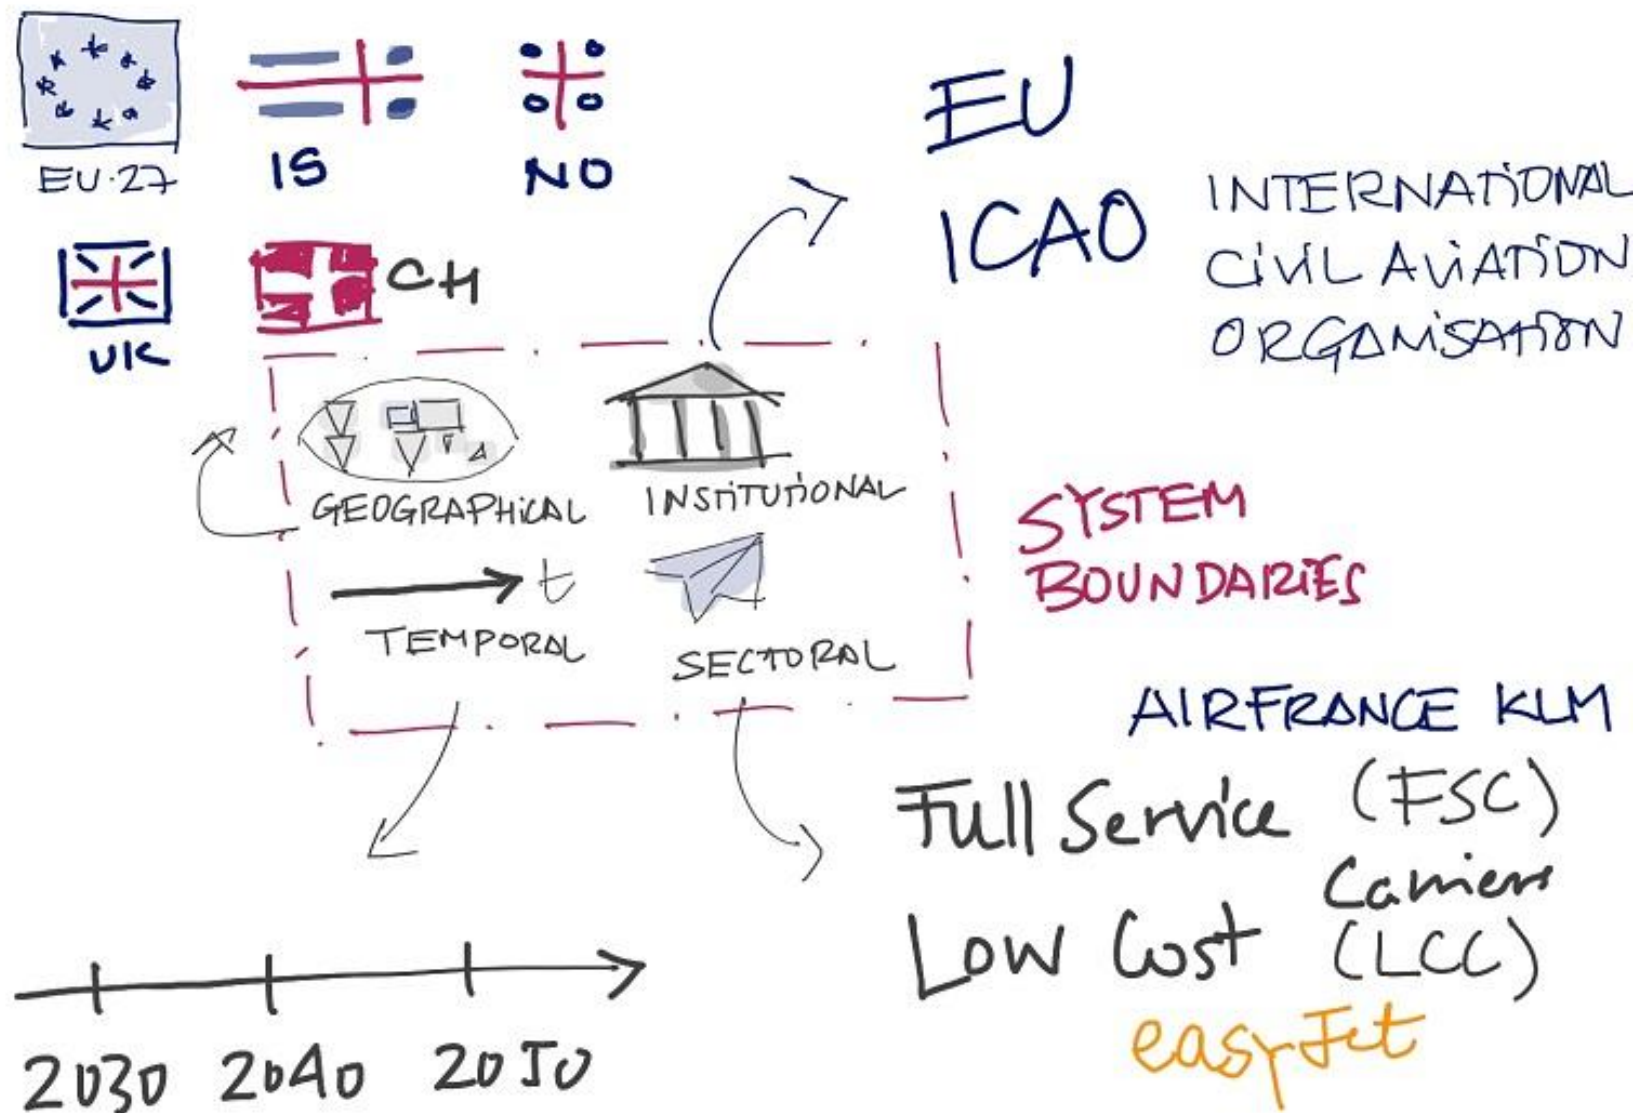 EU-27
IS
NO
UK
CH
EU
ICAO
INTERNATIONAL
CIVIL AVIATION
ORGANISATION
GEOGRAPHICAL
INSTITUTIONAL
t
TEMPORAL
SECTORAL
SYSTEM
BOUNDARIES
AIRFRANCE KLM
Full Service (FSC)
Carriers
Low Cost (LCC)
easyJet
2030 2040 2050